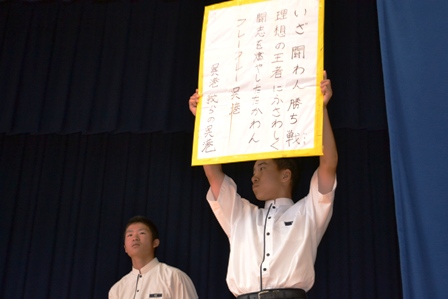 いざ 闘わん 勝ち戦
理想の王者にふさわしく
闘志を燃やしたたかわん
フレーフレー 呉港
呉港 我らの呉港